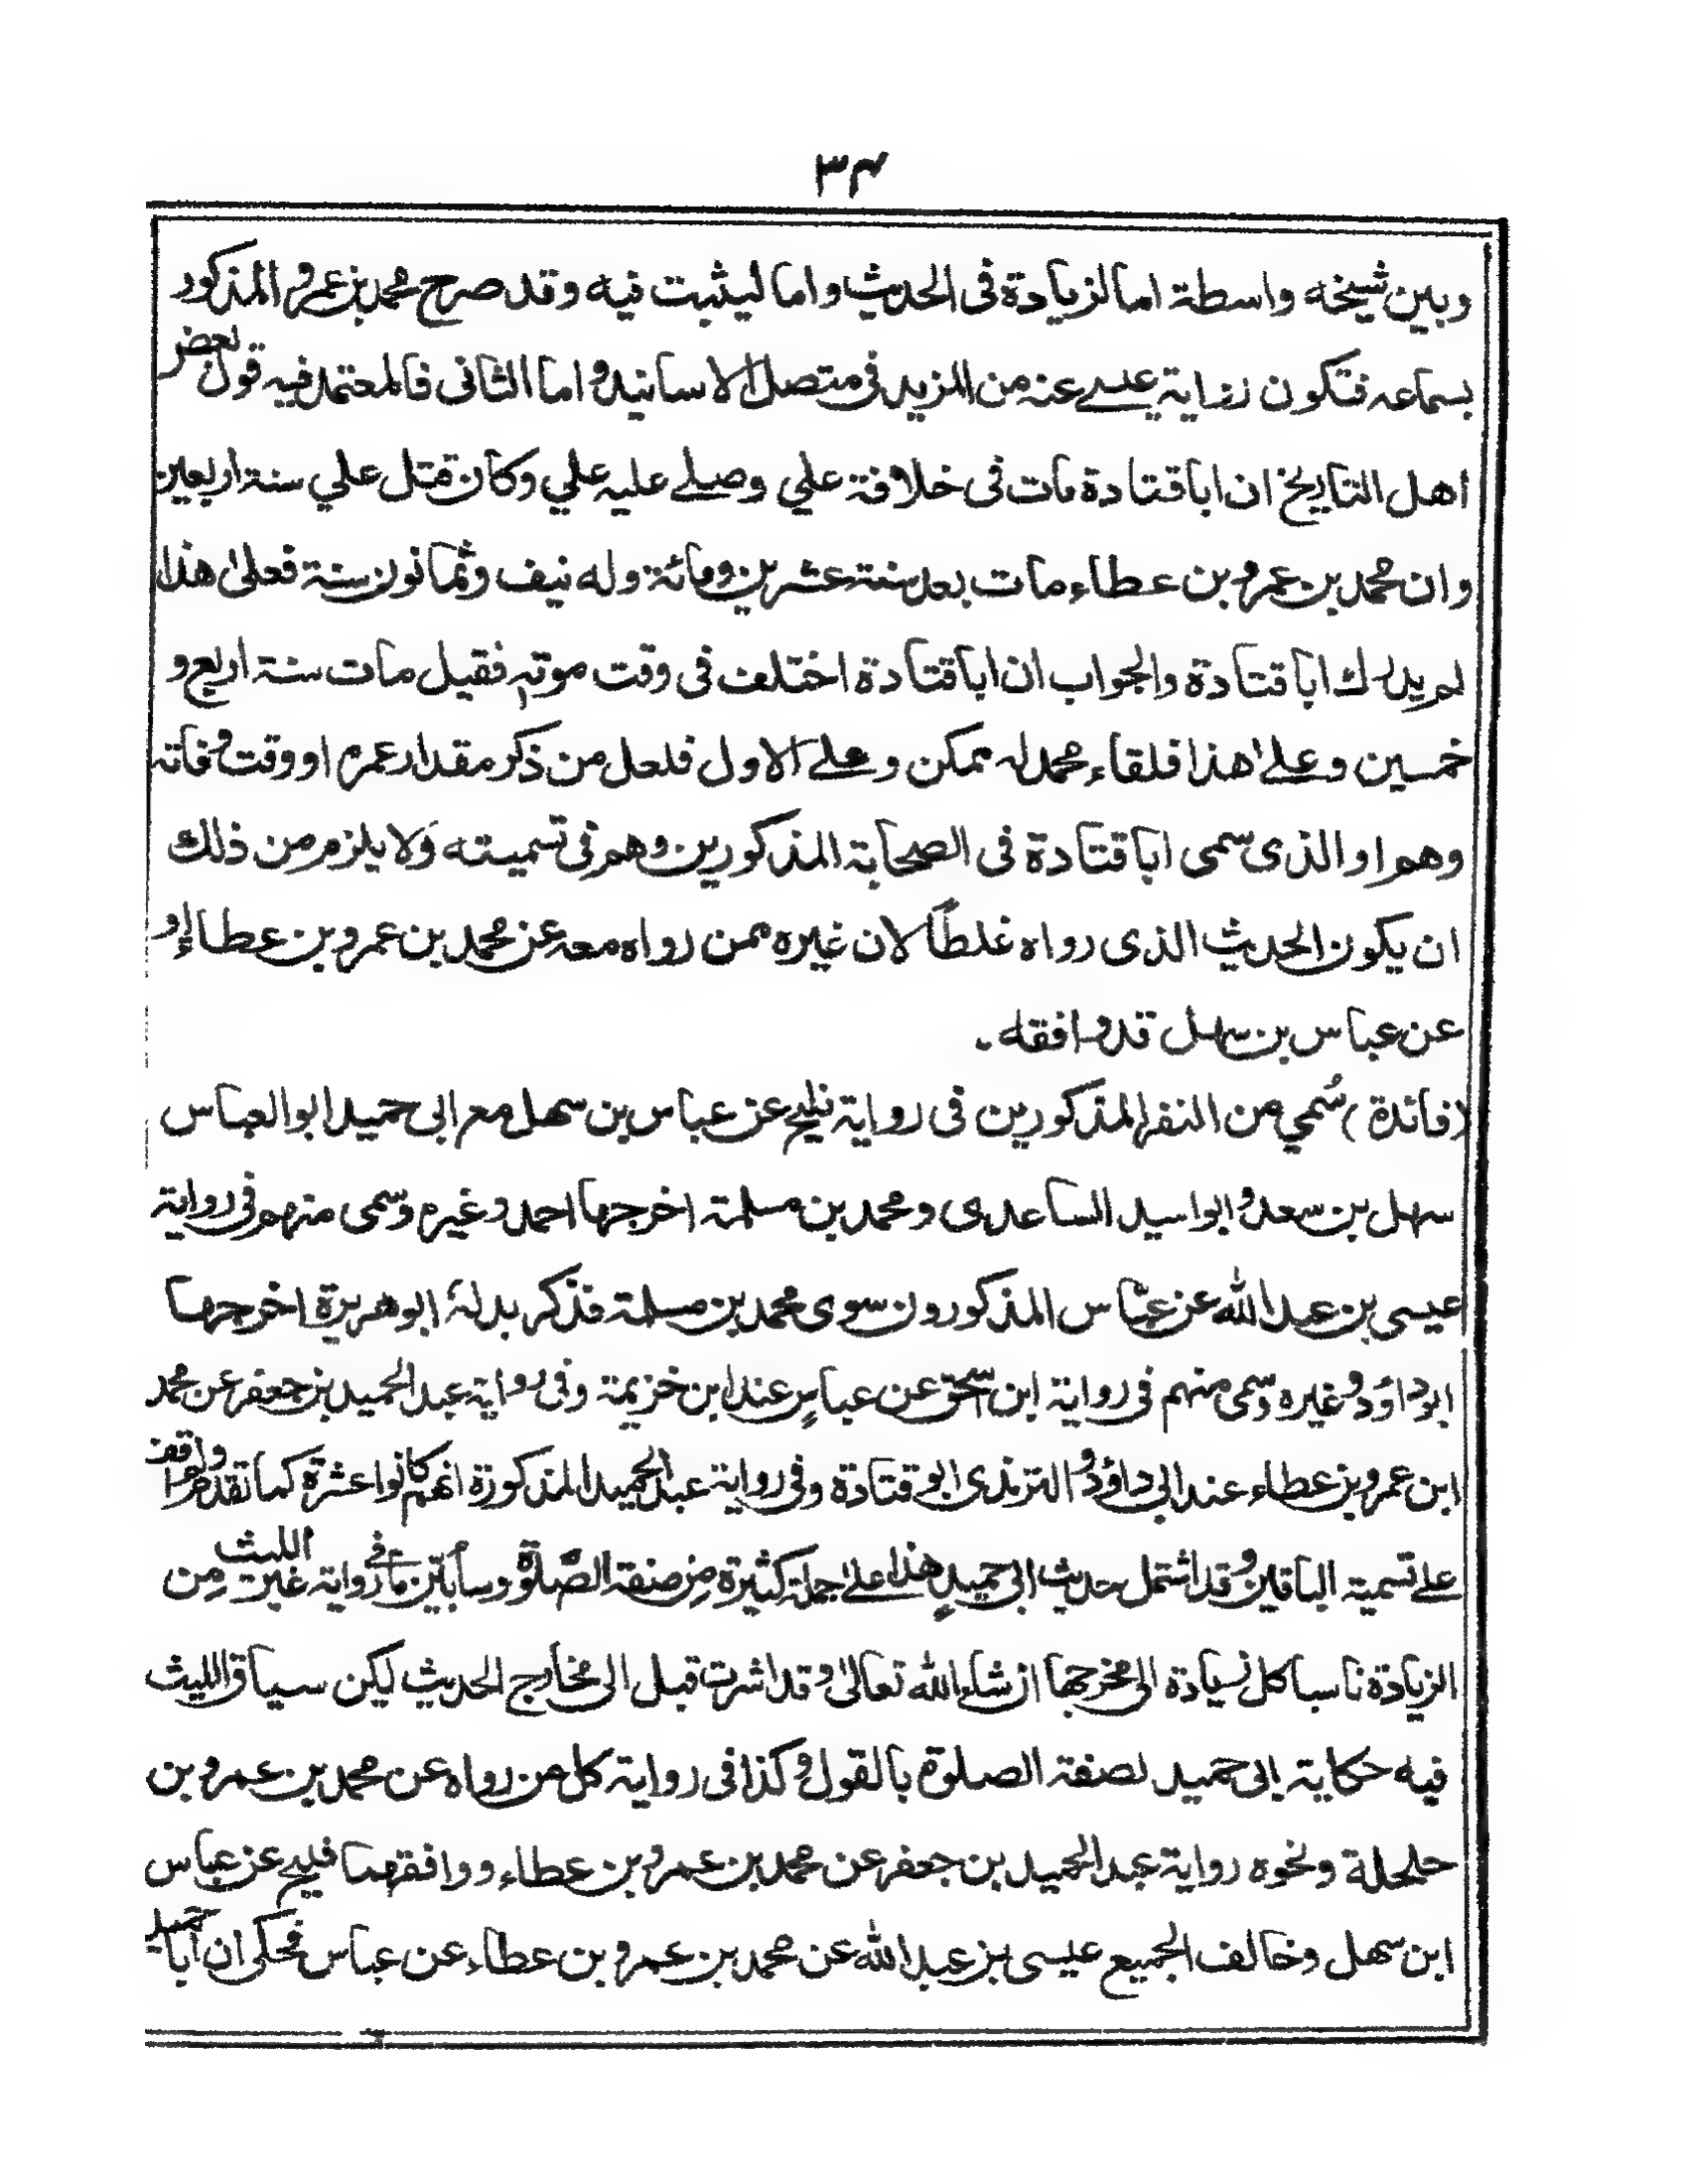 ٣٤
وبين شيخه واسطة اما لزيادة فى الحديث واما ليثبت فيه وقد صرح محمد بن عمرو المذكور
بسماعه فتكون رواية عيسے عنه من المزيد فى متصل الاسانيد واما الثانى فالمعتمد فيه قول بعض
اهل التاريخ ان ابا قتادة مات فى خلافة علي وصلے عليه علي وكان قتل علي سنة اربعين
وان محمد بن عمرو بن عطاء مات بعد سنة عشرين ومائة وله نيف وثمانون سنة فعلىٰ هذا
لم يدرك ابا قتادة والجواب ان ابا قتادة اختلف فى وقت موته فقيل مات سنة اربع و
خمسين وعلےٰ هذا فلقاء محمد له ممكن وعلے الاول فلعل من ذكر مقدار عمره او وقت وفاته
وهم او الذى سمى ابا قتادة فى الصحابة المذكورين وهم فى تسميته ولا يلزم من ذلك
ان يكون الحديث الذى رواه غلطاً لان غيره ممن رواه معه عن محمد بن عمرو بن عطاء او
عن عباس بن سهل قد وافقه ۔
(فائدة) سُمي من النفر المذكورين فى رواية فليح عن عباس بن سهل مع ابى حميد ابو العباس
سهل بن سعد وابو اسيد الساعدى ومحمد بن مسلمة اخرجها احمد وغيره وسمى منهم فى رواية
عيسى بن عبد الله عن عباس المذكورون سوى محمد بن مسلمة فذكر بدلهٗ ابو هريرة اخرجها
ابوداؤد وغيره وسمى منهم فى رواية ابن سحق عن عباس عند ابن خزيمة وفى رواية عبد الحميد بن جعفر عن محمد
ابن عمرو بن عطاء عند ابى داؤد والترمذى ابو قتادة وفى رواية عبد الحميد المذكورة انهم كانوا عشرة كما تقدم ولم اقف
علے تسمية الباقين وقد اشتمل حديث ابى حميد هذا علےٰ جملة كثيرة من صفة الصلوة وسأبيّن ما فى رواية غير الليث من
الزيادة ناسبا كل زيادة الى مخرجها ان شاء الله تعالىٰ وقد اشرت قبل الى مخارج الحديث لكن سياق الليث
فيه حكاية ابى حميد لصفة الصلوة بالقول وكذا فى رواية كل من رواه عن محمد بن عمرو بن
حلحلة ونحوه رواية عبد الحميد بن جعفر عن محمد بن عمرو بن عطاء ووافقهما فليح عن عباس
ابن سهل وخالف الجميع عيسى بن عبد الله عن محمد بن عمرو بن عطاء عن عباس فحكى ان ابا حميد